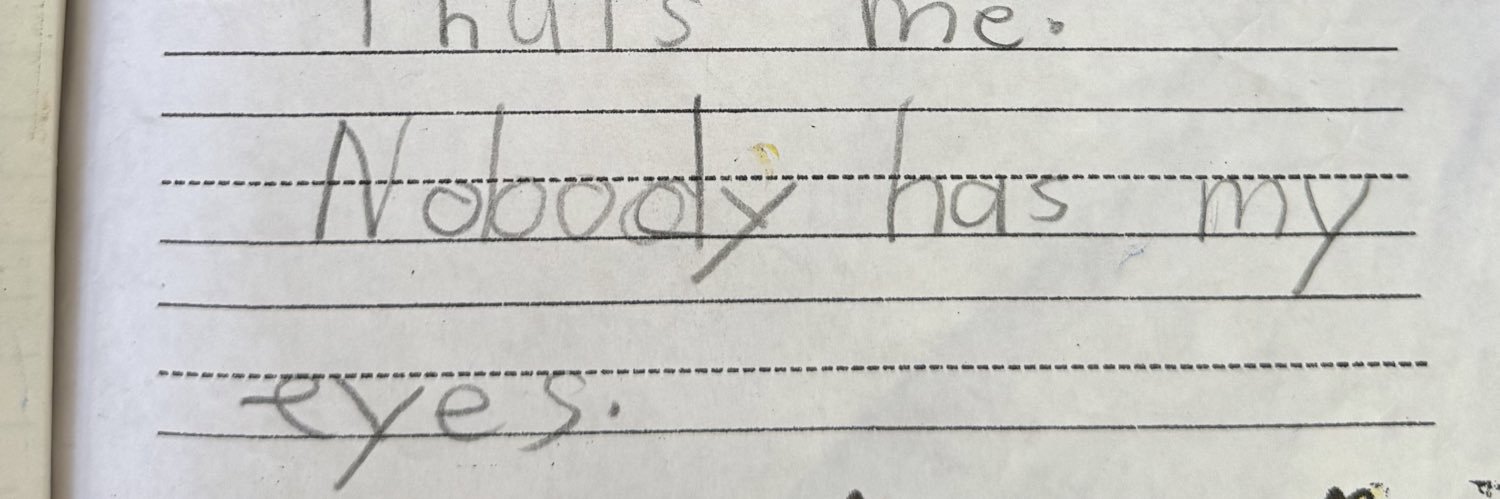 Thuts me.
Nobody has my
eyes.